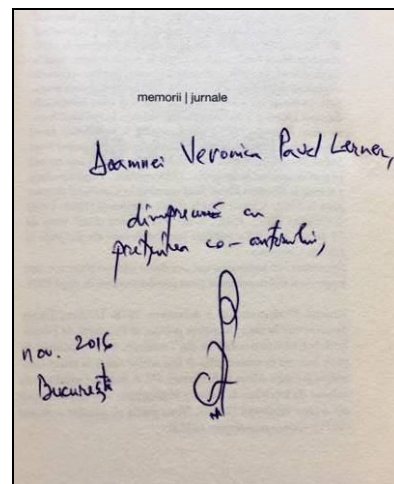 memorii | jurnale
Doamnei Veronica Pavel Lerner,
dimpreună cu
prețuirea co-autorului,
nov. 2016
București